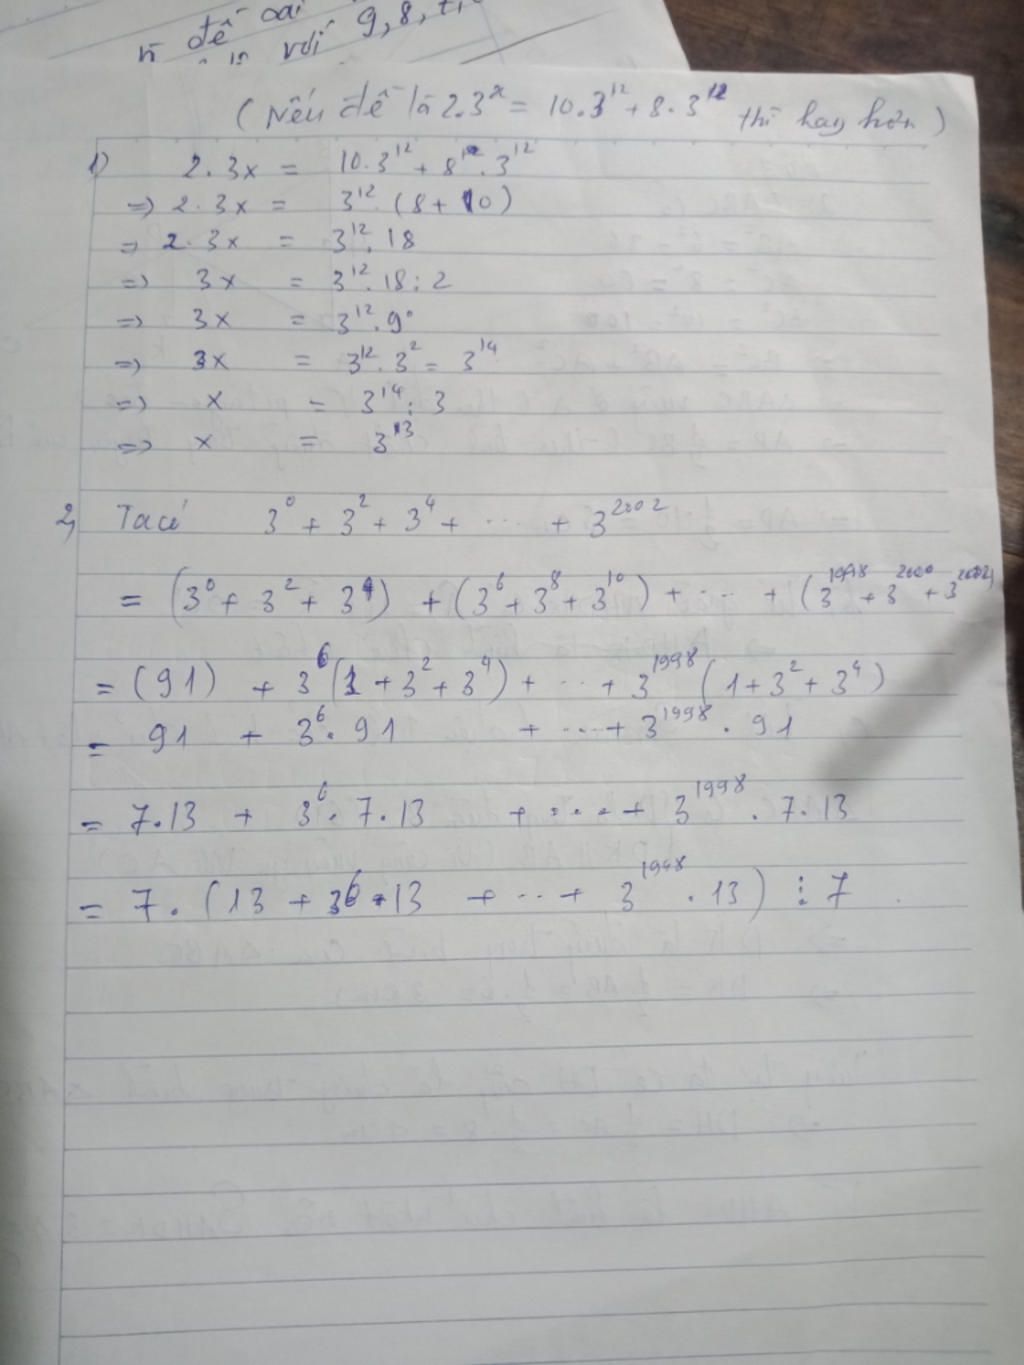 đề sai
với 9, 8,
(Nếu đề là 2.3^x = 10.3^12 + 8.3^12 thì hay hơn)
1) 2.3x = 10.3^12 + 8^12.3^12
=> 2.3x = 3^12.(8+10)
=> 2.3x = 3^12.18
=> 3x = 3^12.18:2
=> 3x = 3^12.9
=> 3x = 3^12.3^2 = 3^14
=> x = 3^14:3
=> x = 3^13
2, Ta có 3^0 + 3^2 + 3^4 + ... + 3^2002
= (3^0 + 3^2 + 3^4) + (3^6 + 3^8 + 3^10) + ... + (3^1998 + 3^2000 + 3^2002)
= (91) + 3^6(1 + 3^2 + 3^4) + ... + 3^1998(1 + 3^2 + 3^4)
= 91 + 3^6.91 + ... + 3^1998.91
= 7.13 + 3^6.7.13 + .... + 3^1998.7.13
= 7.(13 + 36.13 + ... + 3^1998.13) ⋮ 7